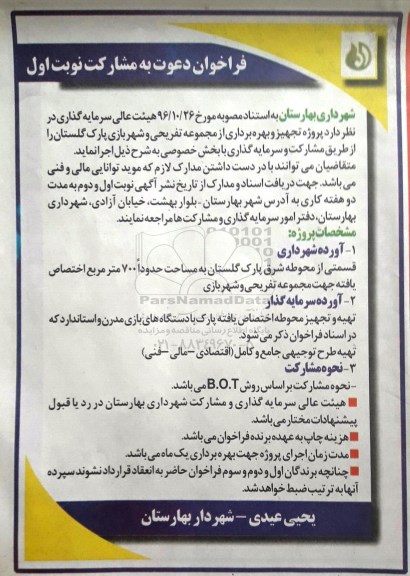 فراخوان دعوت به مشارکت نوبت اول
شهرداری بهارستان به استناد مصوبه مورخ ۹۶/۱۰/۲۶ هیئت عالی سرمایه گذاری در
نظر دارد پروژه تجهیز و بهره برداری از مجموعه تفریحی و شهربازی پارک گلستان را
از طریق مشارکت و سرمایه گذاری با بخش خصوصی به شرح ذیل اجرا نماید.
متقاضیان می توانند با در دست داشتن مدارک لازم که موید توانایی مالی و فنی
می باشد. جهت دریافت اسناد و مدارک از تاریخ نشر آگهی نوبت اول و دوم به مدت
دو هفته کاری به آدرس شهر بهارستان - بلوار بهشت، خیابان آزادی، شهرداری
بهارستان، دفتر امور سرمایه گذاری و مشارکت ها مراجعه نمایند.
مشخصات پروژه:
۱- آورده شهرداری
قسمتی از محوطه شرق پارک گلستان به مساحت حدوداً ۷۰۰ متر مربع اختصاص
یافته جهت مجموعه تفریحی و شهربازی
ParsNamadData
۲- آورده سرمایه گذار
تهیه و تجهیز محوطه اختصاص یافته پارک با دستگاه های بازی مدرن و استاندارد که
پایگاه اطلاع رسانی مناقصه و مزایده
در اسناد فراخوان ذکر می شود.
۰۲۱-۸۸۳۴۹۶۷۰
تهیه طرح توجیهی جامع و کامل (اقتصادی – مالی – فنی)
۳- نحوه مشارکت
- نحوه مشارکت بر اساس روش B.O.T می باشد.
هیئت عالی سرمایه گذاری و مشارکت شهرداری بهارستان در رد یا قبول
پیشنهادات مختار می باشد.
هزینه چاپ به عهده برنده فراخوان می باشد.
مدت زمان اجرای پروژه جهت بهره برداری یک ماه می باشد.
چنانچه برندگان اول و دوم و سوم فراخوان حاضر به انعقاد قرارداد نشوند سپرده
آنها به ترتیب ضبط خواهد شد.
یحیی عیدی – شهردار بهارستان